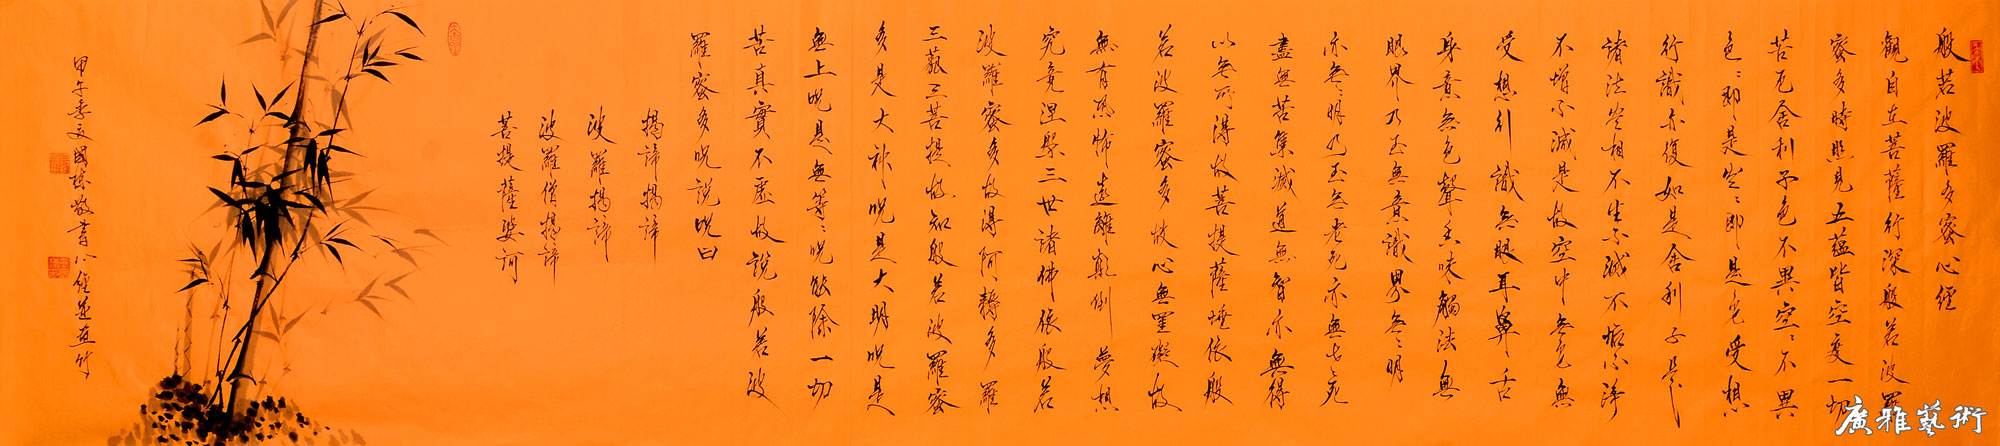 般若波羅多蜜心經
觀自在菩薩行深般若波羅
蜜多時照見五蘊皆空度一切
苦厄舍利子色不異空〻不異
色〻即是空〻即是色受想
行識亦復如是舍利子是
諸法空相不生不滅不垢不淨
不增不減是故空中無色無
受想行識無眼耳鼻舌
身意無色聲香味觸法無
眼界乃至無意識界無〻明
亦無〻明乃至無老死亦無老死
盡無苦集滅道無智亦無得
以無所得故菩提薩埵依般
若波羅蜜多故心無罣礙故
無有恐怖遠離顛倒夢想
究竟涅槃三世諸佛依般若
波羅蜜多故得阿耨多羅
三藐三菩提故知般若波羅蜜
多是大神咒是大明咒是
無上咒是無等〻咒能除一切
苦真實不虛故說般若波
羅蜜多咒說咒曰
揭諦揭諦
波羅揭諦
波羅僧揭諦
菩提薩婆訶
甲午季夏國敬書心經並畫竹
廣雅藝術